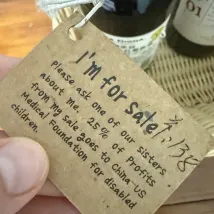 I'm for sale!
Please ask one of our sisters
about me. 25% of Profits
from my sale goes to China-US
Medical Foundation for disabled
children.
138
01